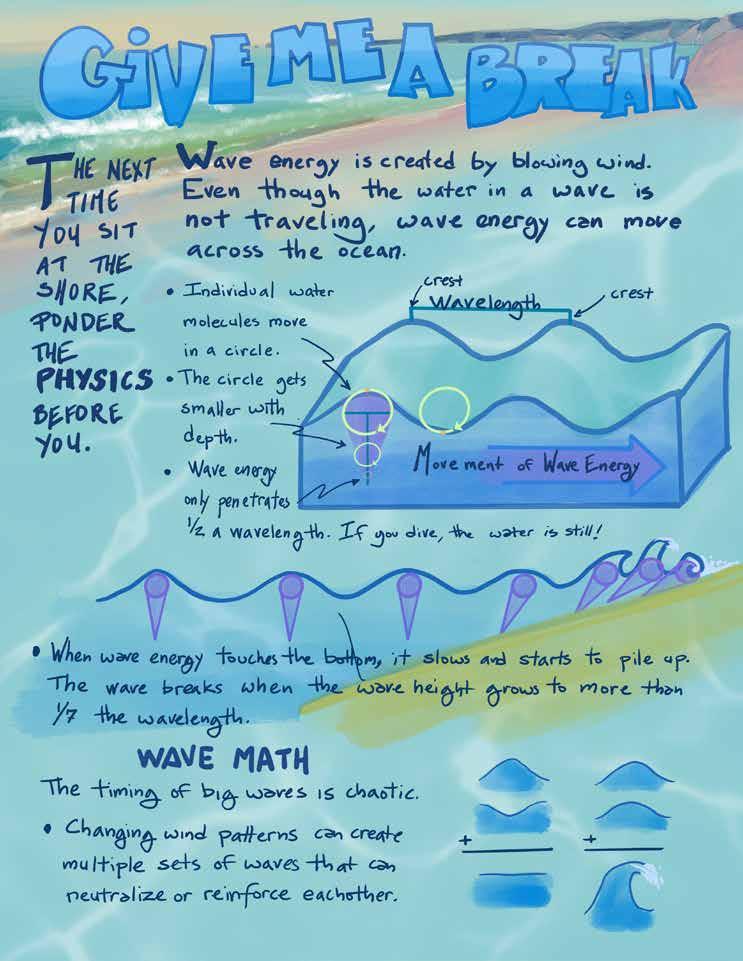 GIVE ME A BREAK
THE NEXT
TIME
YOU SIT
AT THE
SHORE,
PONDER
THE
PHYSICS
BEFORE
YOU.
Wave energy is created by blowing wind.
Even though the water in a wave is
not traveling, wave energy can move
across the ocean.
• Individual water
molecules move
in a circle.
• The circle gets
smaller with
depth.
• Wave energy
only penetrates
1/2 a wavelength. If you dive, the water is still!
crest
Wavelength
crest
Movement of Wave Energy
• When wave energy touches the bottom, it slows and starts to pile up.
The wave breaks when the wave height grows to more than
1/7 the wavelength.
WAVE MATH
The timing of big waves is chaotic.
• Changing wind patterns can create
multiple sets of waves that can
neutralize or reinforce eachother.
+
+